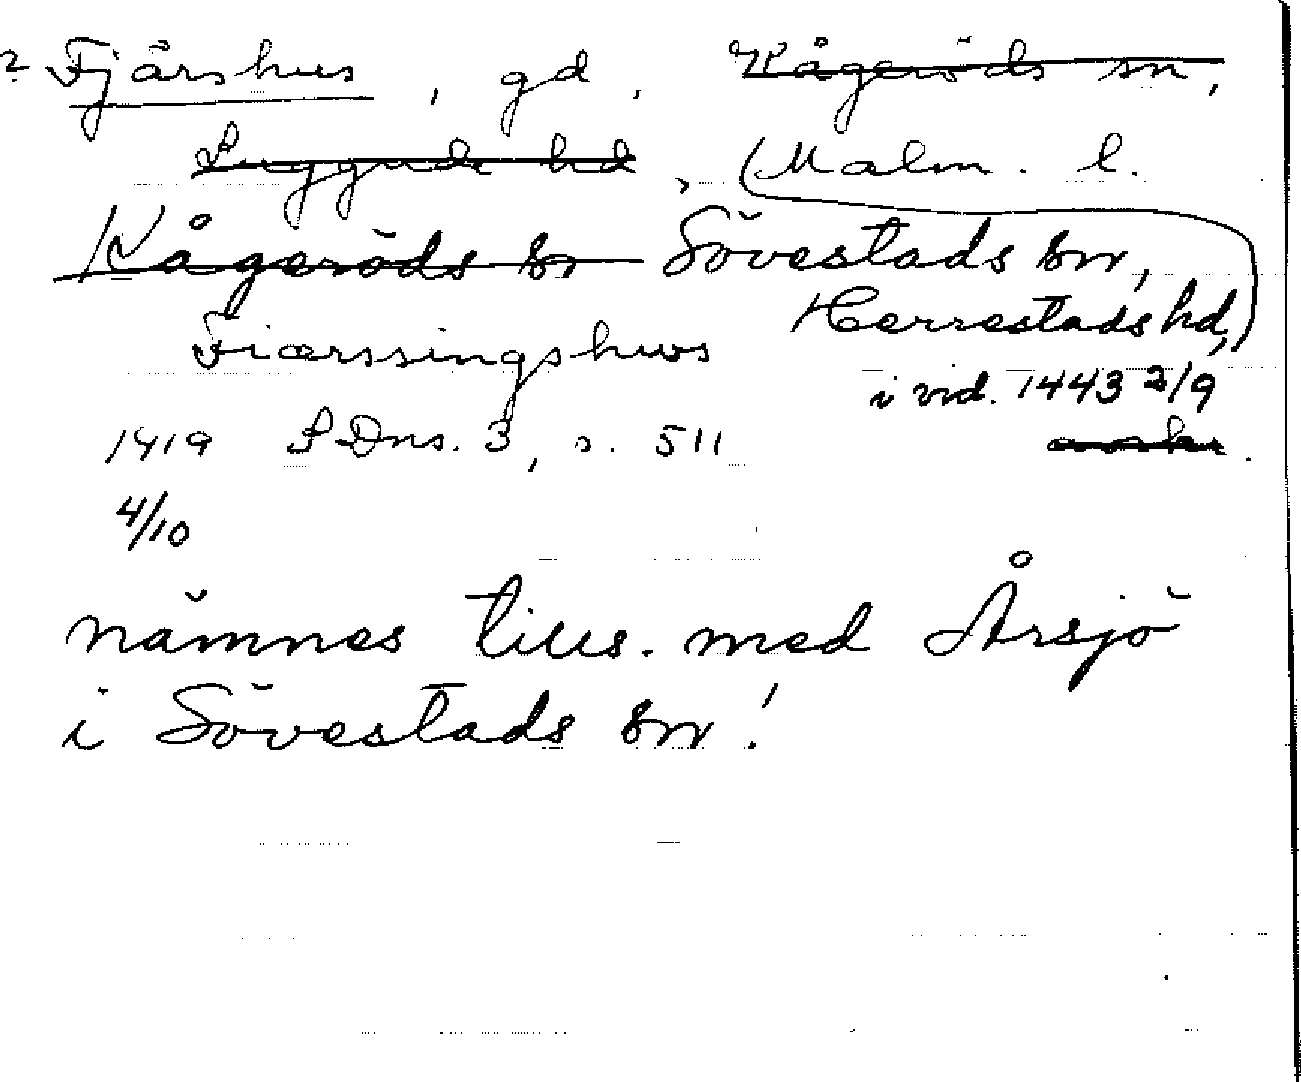 ? Fjärshus, gd. Kågeröds sn,
Luggude hd, (Malm. l.
Kågeröds sn Sövestads sn,
Herrestads hd,)
Fiærssingshws
i vid. 1443 2/9
1419 SDns. 3, s. 511
4/10
nämnes tills. med Årsjö
i Sövestads sn!